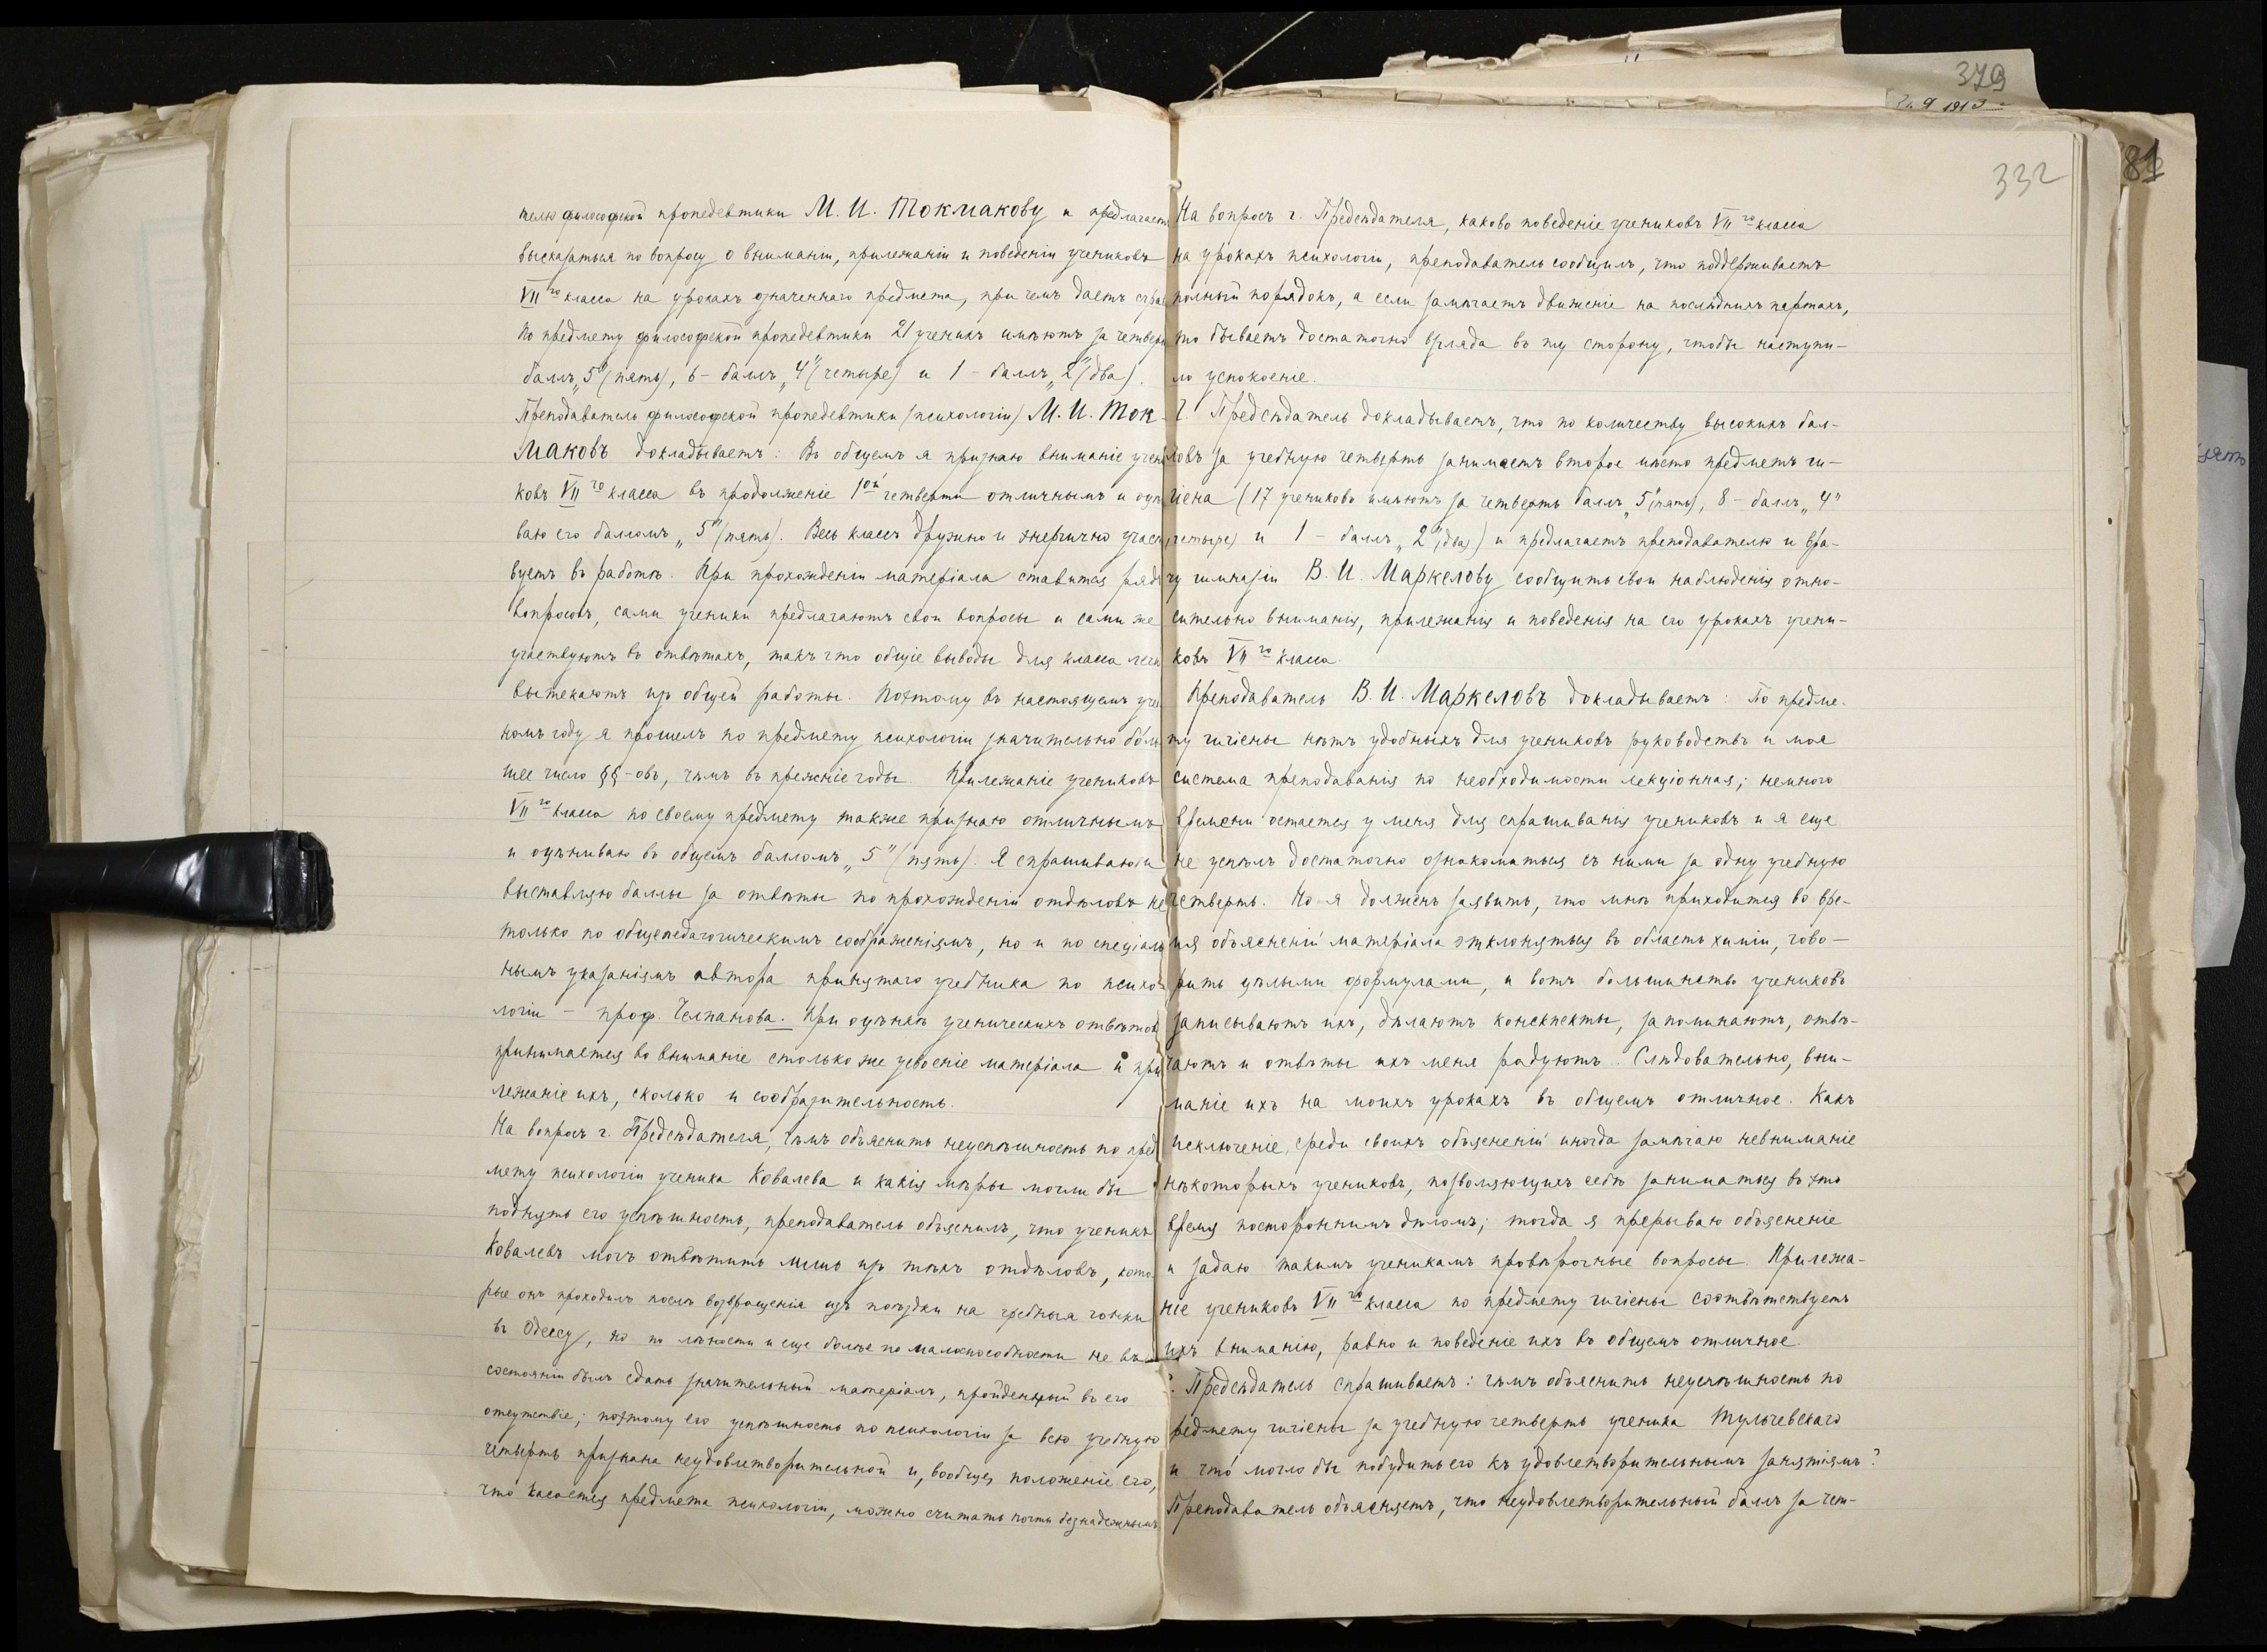 телю философской пропедевтики М. И. Токмакову и предлагаетъ
высказаться по вопросу о вниманіи, прилежаніи и поведеніи учениковъ
VII го класса на урокахъ означеннаго предмета, при чемъ даетъ справ
По предмету философской пропедевтики 21 ученикъ имѣютъ за четверть
баллъ „5" (пять), 6 – баллъ „4" (четыре) и 1 – баллъ „2" (два).
Преподаватель философской пропедевтики (психологіи) М. И. Ток-
маковъ докладываетъ: Въ общемъ я признаю вниманіе учени
ковъ VII го класса въ продолженіе 1ой четверти отличнымъ и оцѣ
ваю его балломъ „5" (пять). Весь классъ дружно и энергично участ
вуетъ въ работѣ. При прохожденіи матеріала ставится рядъ
вопросовъ, сами ученики предлагаютъ свои вопросы и сами же
участвуютъ въ отвѣтахъ, такъ что общіе выводы для класса легк
вытекаютъ изъ общей работы. Поэтому въ настоящемъ учеб
номъ году я прошелъ по предмету психологіи значительно боль
шее число §§-овъ, чѣмъ въ прежніе годы. Прилежаніе учениковъ
VII го класса по своему предмету также признаю отличнымъ
и оцѣниваю въ общемъ балломъ „5" (пять). Я спрашиваю и
выставляю баллы за отвѣты по прохожденіи отдѣловъ не
только по общепедагогическимъ соображеніямъ, но и по спеціаль
нымъ указаніямъ автора принятаго учебника по психо-
логіи – проф. Челпанова. При оцѣнкѣ ученическихъ отвѣтовъ
принимается во вниманіе столько же усвоеніе матеріала и при
лежаніе ихъ, сколько и сообразительность.
На вопросъ г. Предсѣдателя, чѣмъ объяснить неуспѣшность по пред
мету психологіи ученика Ковалева и какія мѣры могли бы
поднять его успѣшность, преподаватель объяснилъ, что ученикъ
Ковалевъ могъ отвѣтить лишь изъ тѣхъ отдѣловъ, кото-
рые онъ проходилъ послѣ возвращенія изъ поѣздки на гребныя гонки
въ Одессу, но по лѣности и еще болѣе по малоспособности не въ
состояніи былъ сдать значительный матеріалъ, пройденный въ его
отсутствіе; поэтому его успѣшность по психологіи за всю учебную
четверть признана неудовлетворительной и, вообще, положеніе его,
что касается предмета психологіи, можно считать почти безнадежнымъ
379
332
81
На вопросъ г. Предсѣдателя, каково поведеніе учениковъ VII го класса
на урокахъ психологіи, преподаватель сообщилъ, что поддерживаетъ
полный порядокъ, а если замѣчаетъ движеніе на послѣднихъ партахъ,
то бываетъ достаточно взгляда въ ту сторону, чтобы наступи-
ло успокоеніе.
Г. Предсѣдатель докладываетъ, что по количеству высокихъ бал-
ловъ за учебную четверть занимаетъ второе мѣсто предметъ ги-
гіена (17 учениковъ имѣютъ за четверть баллъ „5" (пять), 8 – баллъ „4"
(четыре) и 1 – баллъ „2" (два)) и предлагаетъ преподавателю и вра-
чу гимназіи В. И. Маркелову сообщить свои наблюденія отно-
сительно вниманія, прилежанія и поведенія на его урокахъ учени-
ковъ VII го класса.
Преподаватель В. И. Маркеловъ докладываетъ: По предме-
ту гигіены нѣтъ удобныхъ для учениковъ руководствъ и моя
система преподаванія по необходимости лекціонная; немного
времени остается у меня для спрашиванія учениковъ и я еще
не успѣлъ достаточно ознакомиться съ ними за одну учебную
четверть. Но я долженъ заявить, что мнѣ приходится во вре-
мя объясненій матеріала отклоняться въ область химіи, гово-
рить цѣлыми формулами, и вотъ большинство учениковъ
записываютъ ихъ, дѣлаютъ конспекты, запоминаютъ, отвѣ-
чаютъ и отвѣты ихъ меня радуютъ. Слѣдовательно, вни-
маніе ихъ на моихъ урокахъ въ общемъ отличное. Какъ
исключеніе, среди своихъ объясненій иногда замѣчаю невниманіе
нѣкоторыхъ учениковъ, позволяющихъ себѣ заниматься въ это
время постороннимъ дѣломъ; тогда я прерываю объясненіе
и задаю такимъ ученикамъ провѣрочные вопросы. Прилежа-
ніе учениковъ VII го класса по предмету гигіены соотвѣтствуетъ
ихъ вниманію, равно и поведеніе ихъ въ общемъ отличное.
Г. Предсѣдатель спрашиваетъ: чѣмъ объяснить неуспѣшность по
предмету гигіены за учебную четверть ученика Тульчевскаго
и что могло бы побудить его къ удовлетворительнымъ занятіямъ?
Преподаватель объясняетъ, что неудовлетворительный баллъ за чет-